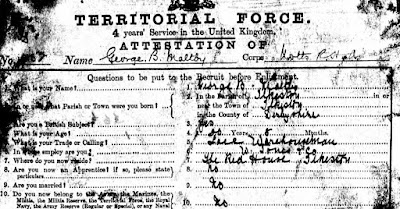 TERRITORIAL FORCE.
4 years' Service in the United Kingdom.
ATTESTATION OF
No. Name George B. Maltby Corps
Questions to be put to the Recruit before Enlistment.
What is your Name? 1. George B. Maltby
In or near what Parish or Town were you born? 2. In the Parish of Ilkeston in or
near the Town of Ilkeston
in the County of Derbyshire
Are you a British Subject? 3. Yes
What is your Age? 4. Years Months.
What is your Trade or Calling? 5. Lace Warehouseman
In whose employ are you? 6. W. Jones & Co
7. Where do you now reside? 7. The Red House, Ilkeston
8. Are you now an Apprentice? If so, please state particulars. 8. No
9. Are you married? 9. No
10. Do you now belong to the Army, the Marines, the
Militia, the Militia Reserve, the Territorial Force, the Royal
Navy, the Army Reserve (Regular or Special), or any Naval 10. No